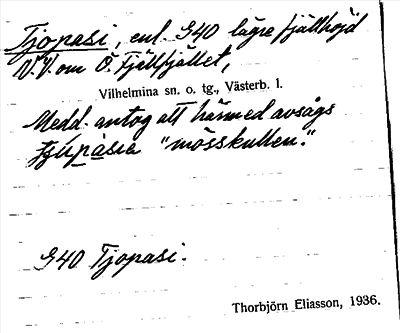 Tjopasi, enl. G40 lägre fjällhöjd
N.V. om Ö. Fjällfjället,
Vilhelmina sn. o. tg., Västerb. l.
Medd. antog att härmed avsågs
tjúpàsia "mösskullen."
G40 Tjopasi.
Thorbjörn Eliasson, 1936.